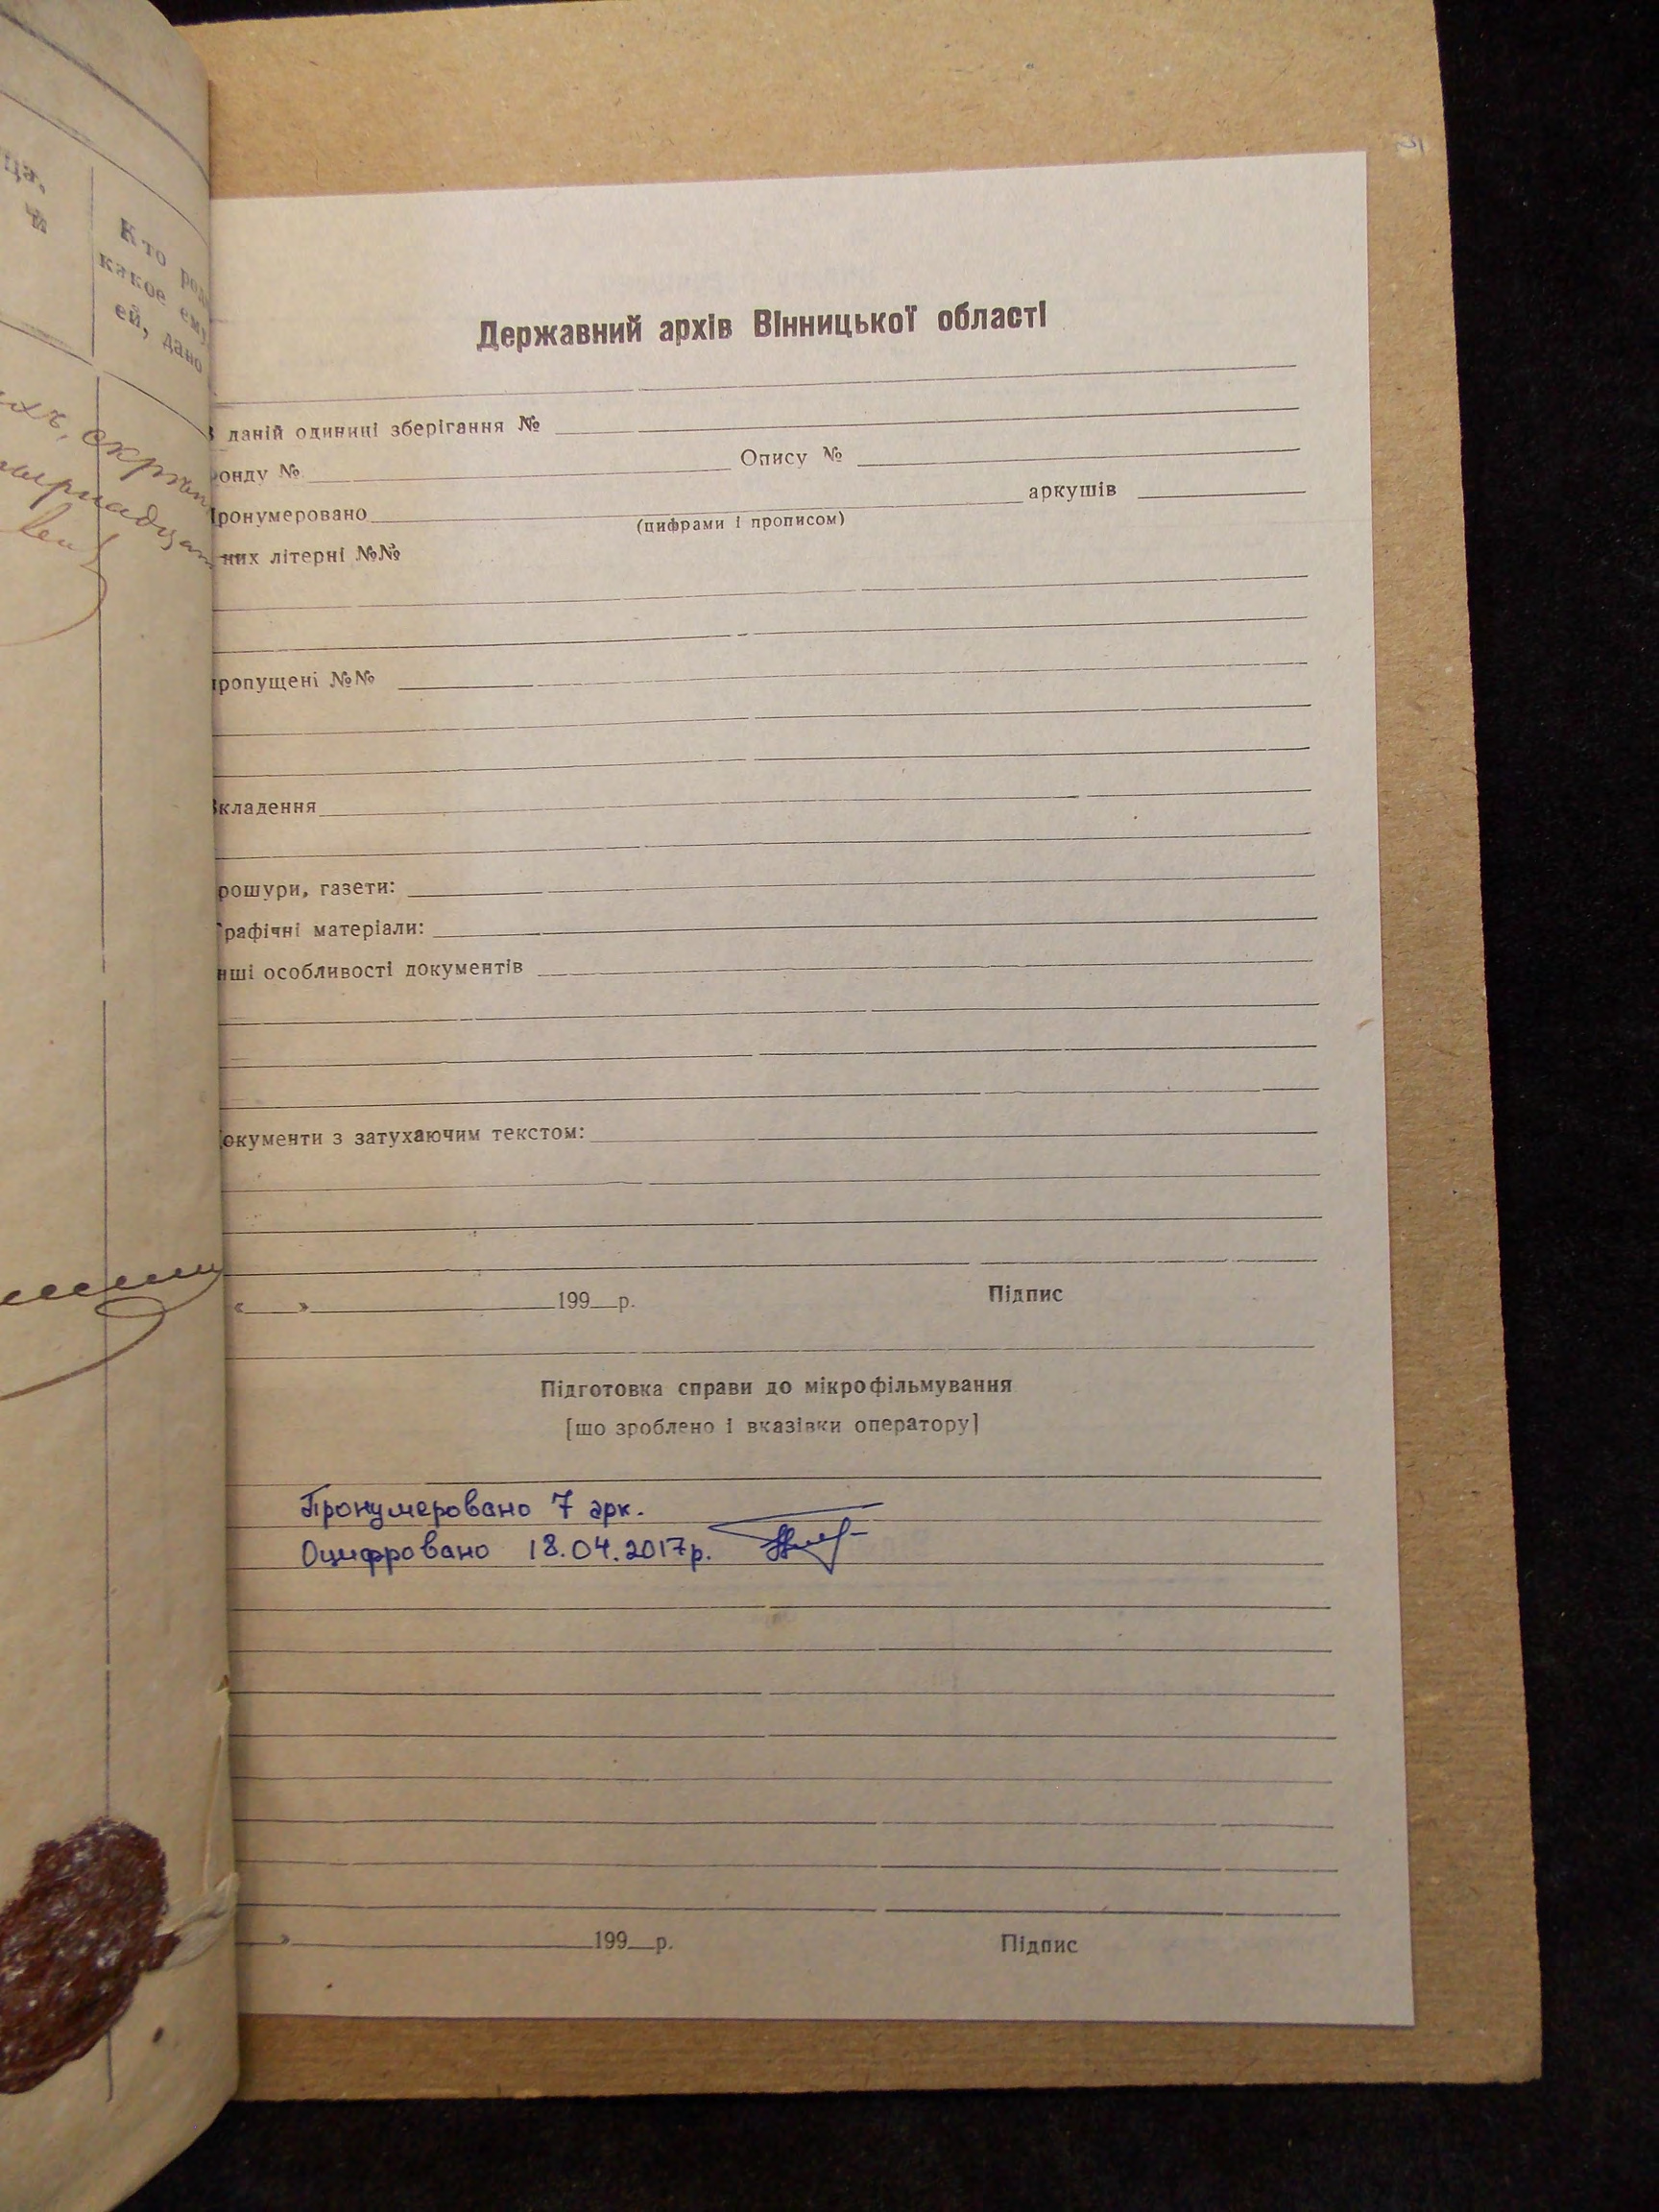 ца,
чи
Кто род
какое ему
ей, дано
Державний архів Вінницької області
даній одиниці зберігання №
онду № Опису №
ронумеровано аркушів
(цифрами і прописом)
них літерні №№
ропущені №№
кладення
рошури, газети:
рафічні матеріали:
нші особливості документів
окументи з затухаючим текстом:
« » 199 р. Підпис
Підготовка справи до мікрофільмування
[що зроблено і вказівки оператору]
Пронумеровано 7 арк.
Оцифровано 18.04.2017р.
» 199 р. Підпис